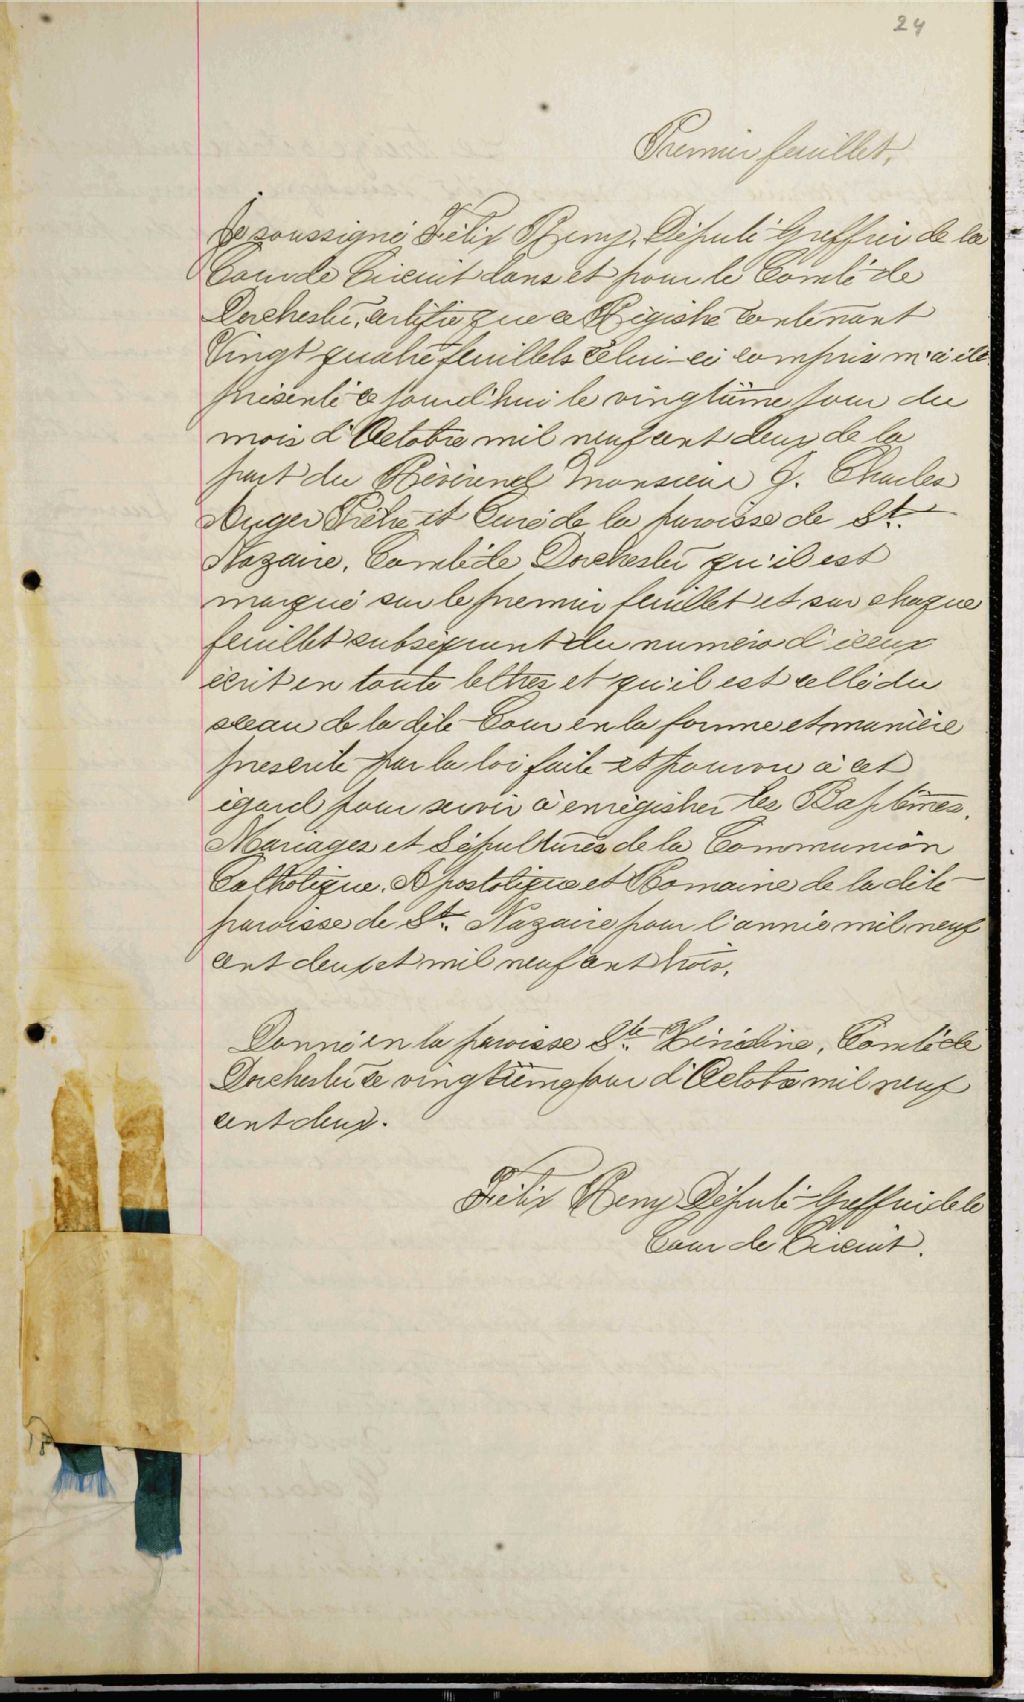 24
Premier feuillet,
Je soussigné, Félix Remy, Député Greffier de la
Cour de Circuit dans et pour le Comté de
Dorchester, certifie que ce Régistre contenant
Vingt quatre feuillets celui-ci compris m'a été
présenté ce jourd'hui le vingtième jour du
mois d'Octobre mil neuf cent deux de la
part du Révérend Monsieur J. Charles
Auger Prêtre et Curé de la paroisse de St.
Nazaire, Comté de Dorchester qu'il est
marqué sur le premier feuillet et sur chaque
feuillet subséquent du numéro d'iceux
écrit en toute lettres et qu'il est scellé du
sceau de la dite Cour en la forme et manière
prescrite par la loi faite et pourvu à cet
égard pour servir à enrégistrer les Baptêmes,
Mariages et Sépultures de la Communion
Catholique, Apostolique et Romaine de la dite
paroisse de St. Nazaire pour l'année mil neuf
cent deux et mil neuf cent trois.
Donné en la paroisse Ste. Hénédine, Comté de
Dorchester ce vingtième jour d'Octobre mil neuf
cent deux.
Félix Remy Député-Greffier de la
Cour de Circuit.